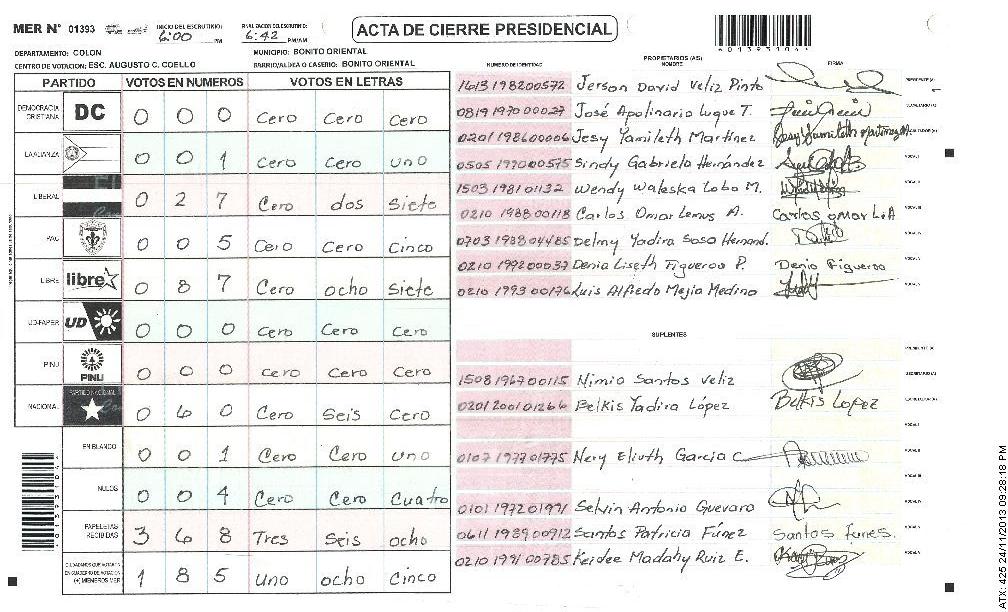 MER N° 01393 INICIO DEL ESCRUTINIO: 6:00 PM FINALIZACION DEL ESCRUTINIO: 6:42 PM/AM
ACTA DE CIERRE PRESIDENCIAL
DEPARTAMENTO: COLON MUNICIPIO: BONITO ORIENTAL
CENTRO DE VOTACION: ESC. AUGUSTO C. COELLO BARRIO/ALDEA O CASERIO: BONITO ORIENTAL
PARTIDO VOTOS EN NUMEROS VOTOS EN LETRAS
DEMOCRACIA CRISTIANA DC 0 0 0 Cero Cero Cero
LA ALIANZA 0 0 1 Cero Cero uno
LIBERAL 0 2 7 Cero dos Siete
PAC 0 0 5 Cero Cero Cinco
LIBRE libre 0 8 7 Cero ocho Siete
UD-FAPER UD 0 0 0 Cero Cero Cero
PINU PINU 0 0 0 Cero Cero Cero
NACIONAL PARTIDO NACIONAL 0 6 0 Cero Seis Cero
EN BLANCO 0 0 1 Cero Cero uno
NULOS 0 0 4 Cero Cero Cuatro
PAPELETAS RECIBIDAS 3 6 8 Tres Seis ocho
(+) MIEMBROS MER 1 8 5 Uno ocho Cinco
PROPIETARIOS (AS)
NUMERO DE IDENTIDAD NOMBRE FIRMA
1613198200572 Jerson David Veliz Pinto
0819197000027 José Apolinario Luque T.
0201198600006 Jesy Yamileth Martinez
0505199000575 Sindy Gabriela Hernández
1503198101132 Wendy Waleska Lobo M.
0210198800118 Carlos Omar Lemus A. Carlos omar L.A
0703198804485 Delmy Yadira Sosa Hernand.
0210199200037 Denia Liseth Figueroa P. Denia Figueroa
0210199300176 Luis Alfredo Mejia Medina
SUPLENTES
1508196700115 Nimio Santos Veliz
0201200101266 Belkis Yadira López Belkis Lopez
0107197701775 Nery Eliuth Garcia C
0101197201991 Selvin Antonio Guevara
0611198900912 Santos Patricia Fúnez Santos Funes.
0210199100785 Keidee Madahy Ruiz E.
ATX: 425 24/11/2013 09:28:18 PM